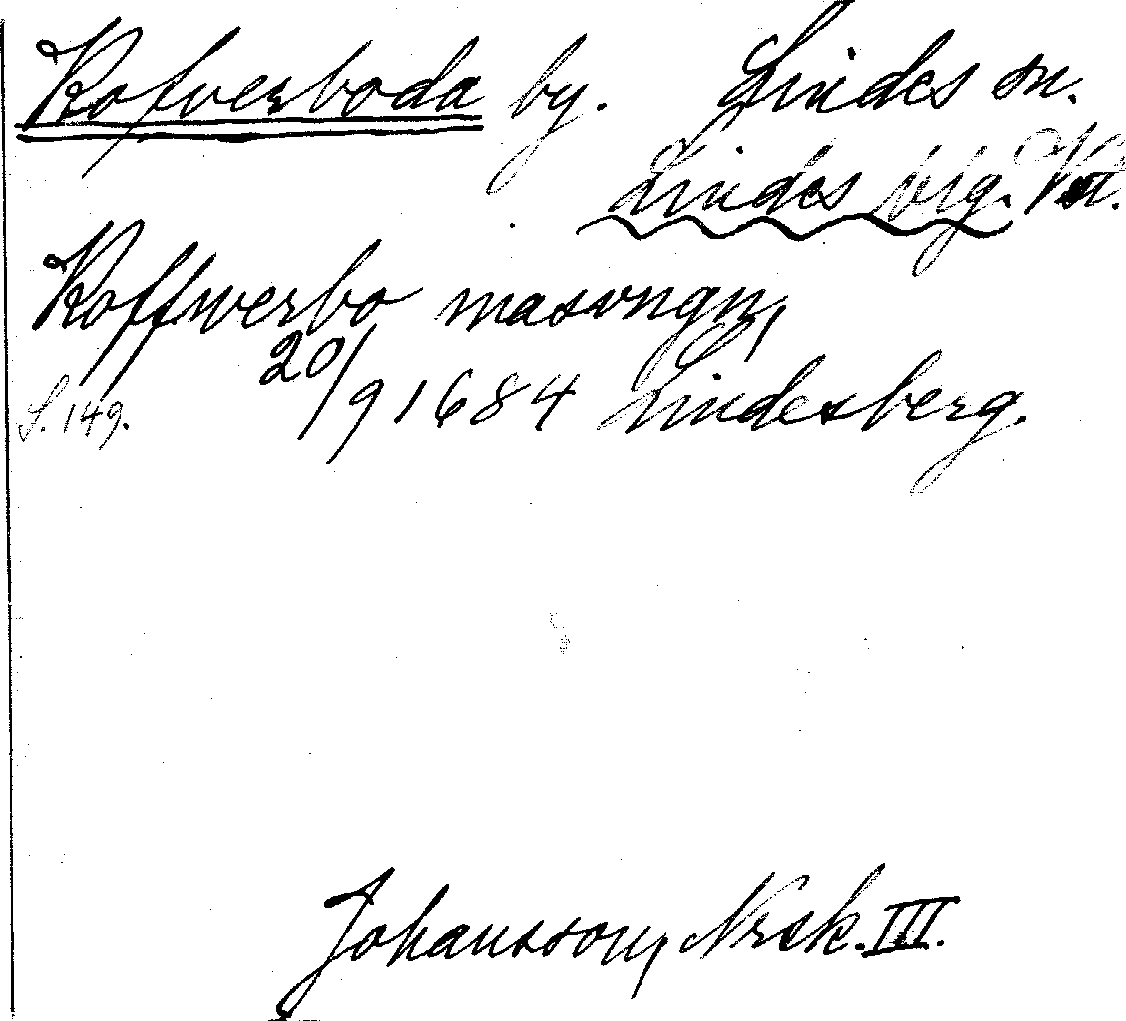 Kofverboda by. Lindes sn.
Lindes brg. Vstl.
Koffwerbo masvngn,
20/9 1684 Lindesberg.
S. 149.
Johansson, Nrsk. III.